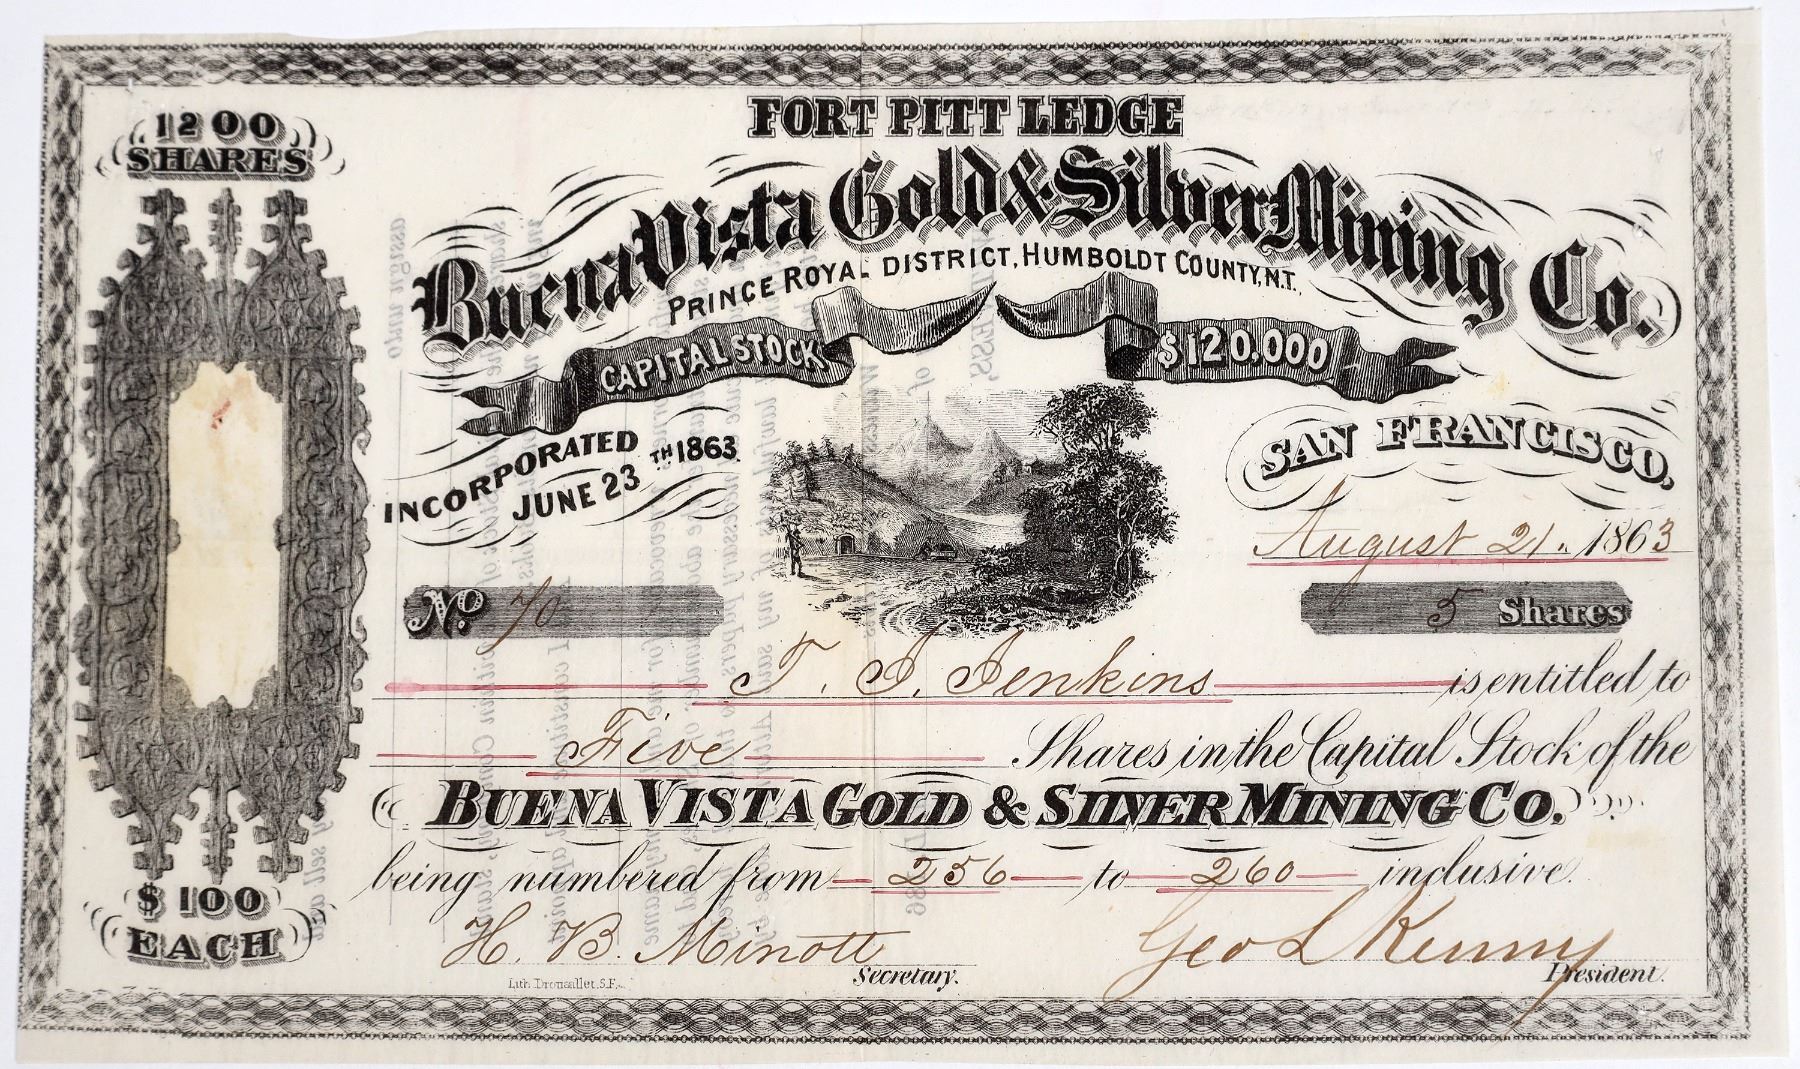 1200
SHARES
$100
EACH
FORT PITT LEDGE
Buena Vista Gold & Silver Mining Co.
PRINCE ROYAL DISTRICT, HUMBOLDT COUNTY, N.T.
CAPITAL STOCK $120,000
INCORPORATED
JUNE 23TH 1863
SAN FRANCISCO,
August 21. 1863
No 70
5 Shares
T. J. Jenkins is entitled to
Five Shares in the Capital Stock of the
BUENA VISTA GOLD & SILVER MINING CO.
being numbered from 256 to 260 inclusive.
H. B. Minott Secretary.
Geo L Kenny President.
Lith. Drouaillet. S.F.